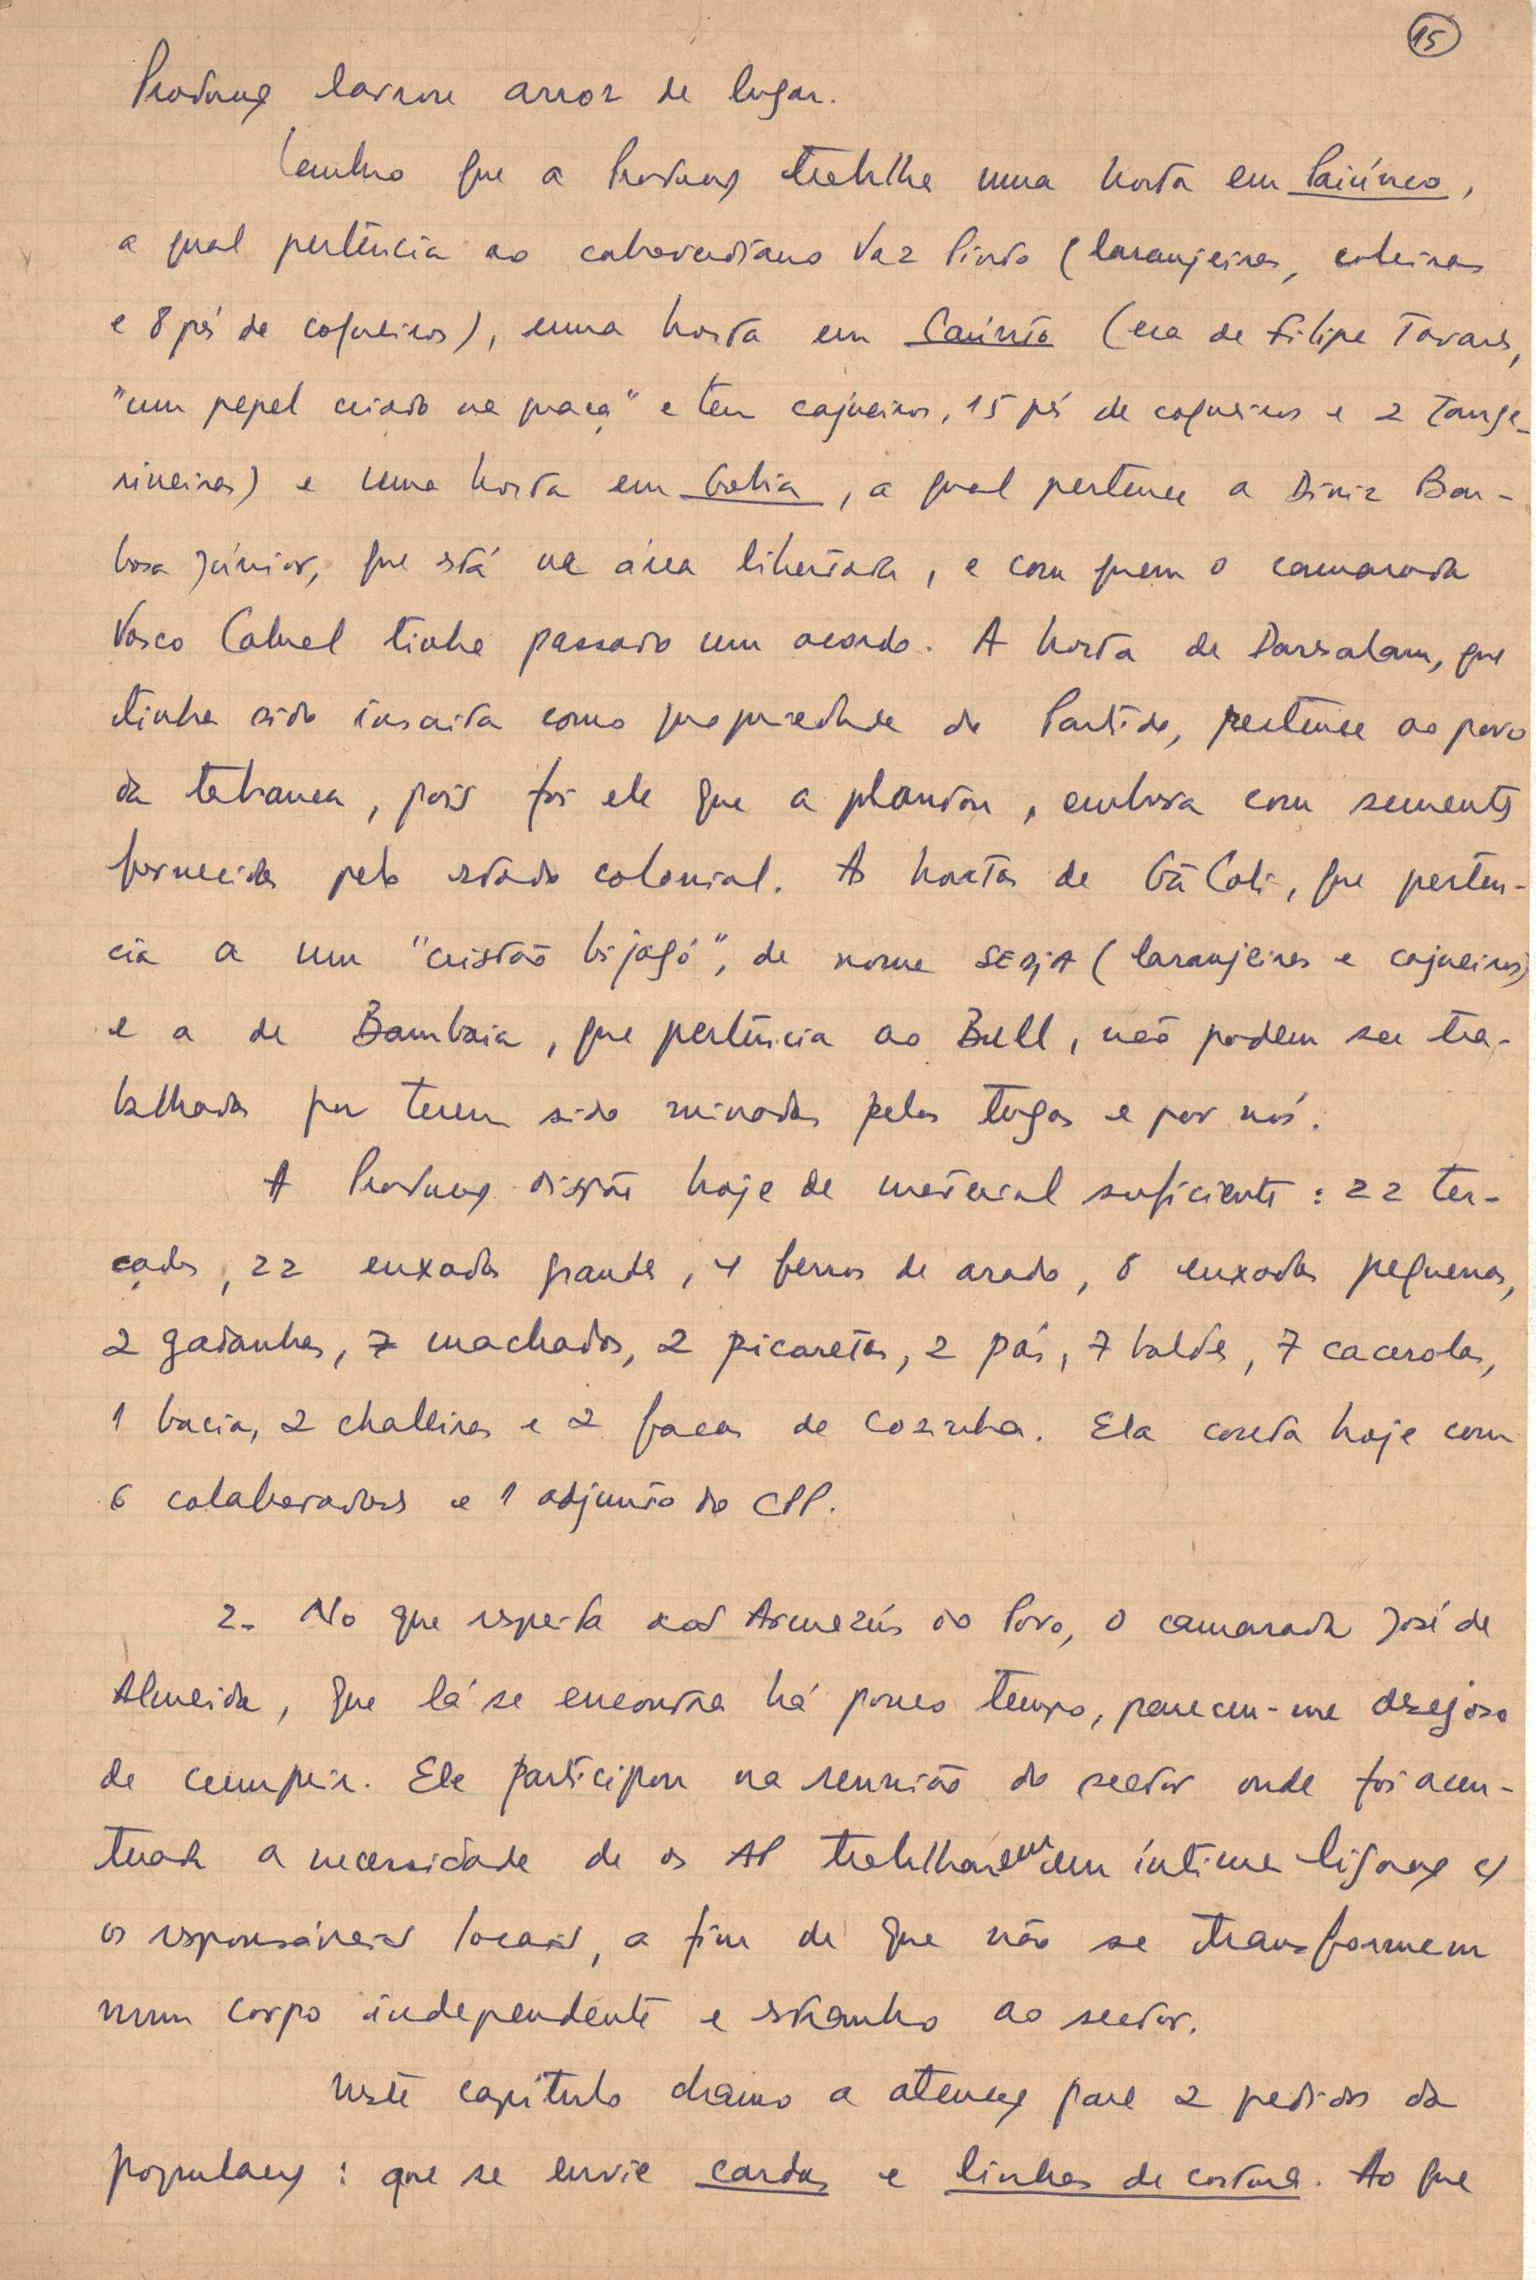 15
Produção lavrou arroz de lugar.
Lembro que a Produção trabalha uma horta em Paiúnco,
a qual pertencia ao caboverdiano Vaz Pinto (laranjeiras, coleiras
e 8 pés de coqueiros), uma horta em Caúnto (era de Filipe Tavares,
"um pepel criado na praça" e tem cajueiros, 15 pés de coqueiros e 2 tange-
rineiras) e uma horta em Gobia, a qual pertence a Diniz Bar-
bosa Júnior, que está na área libertada, e com quem o camarada
Vasco Cabral tinha passado um acordo. A horta de Darsalam, que
tinha sido inscrita como propriedade do Partido, pertence ao povo
da tabanca, pois foi ele que a plantou, embora com sementes
fornecidas pelo estado colonial. As hortas de Gã Coli, que perten-
cia a um "cristão bijagó", de nome (laranjeiras e cajueiros)
e a de Bambaia, que pertencia ao Bull, não podem ser tra-
balhadas por terem sido minadas pelos tugas e por nós.
A Produção dispõe hoje de material suficiente: 22 ter-
çados, 22 enxadas grandes, 4 ferros de arado, 8 enxadas pequenas,
2 gadanhas, 7 machados, 2 picaretas, 2 pás, 7 baldes, 7 caçarolas,
1 bacia, 2 chaleiras e 2 facas de cozinha. Ela conta hoje com
6 colaboradores e 1 adjunto do CPP.
2. No que respeita aos Armazéns do Povo, o camarada José de
Almeida, que lá se encontra há pouco tempo, pareceu-me desejoso
de cumprir. Ele participou na reunião do sector onde foi acen-
tuada a necessidade de os AP trabalharem em íntima ligação c/
os responsáveis locais, a fim de que não se transformem
num corpo independente e estranho ao sector.
Neste capítulo chamo a atenção para 2 pedidos da
população: que se envie cardas e linhas de costura. Ao que